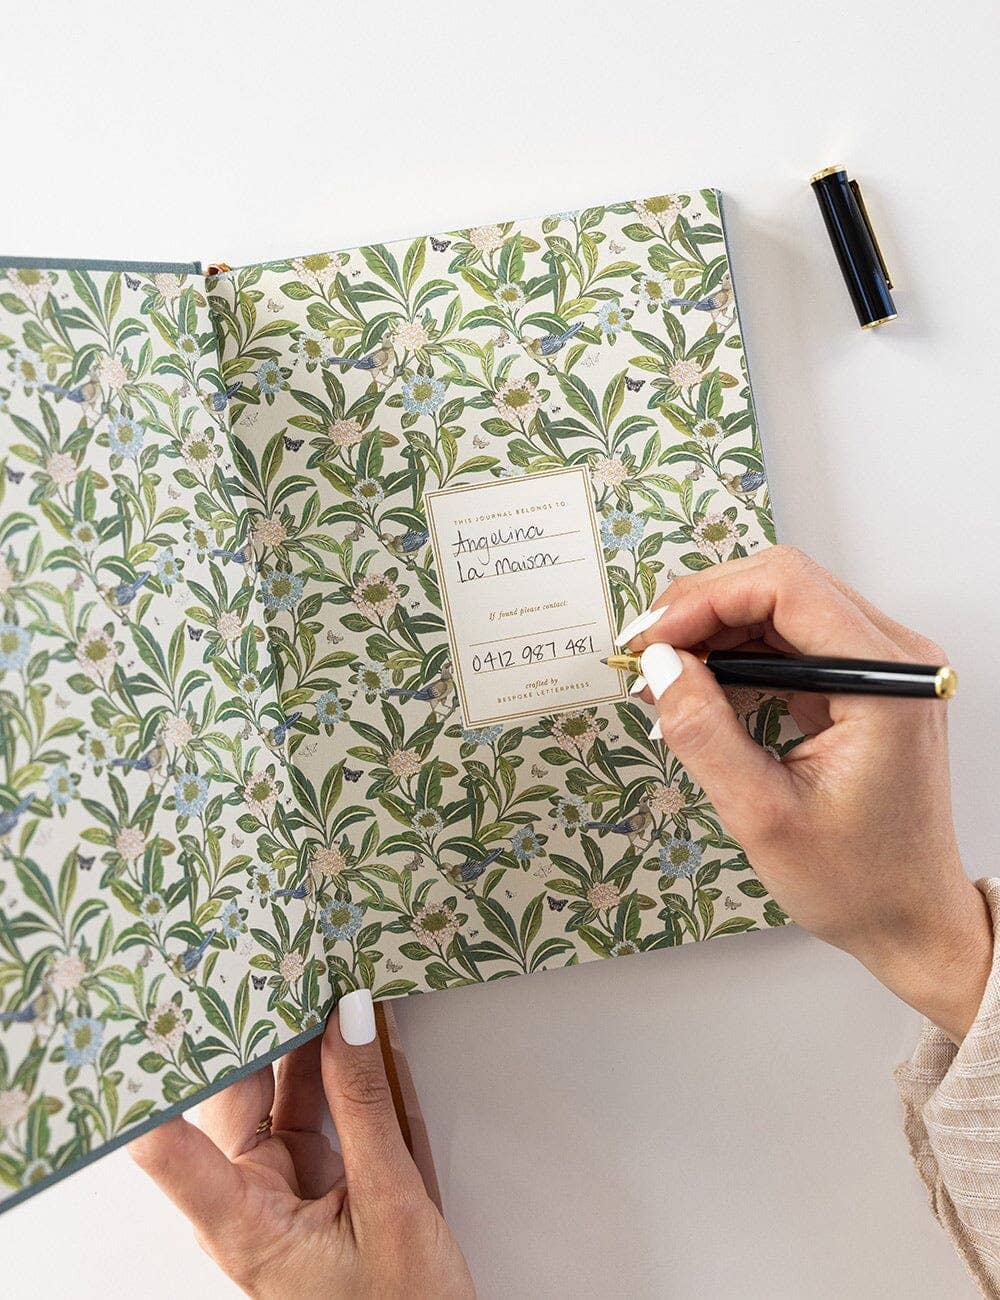 THIS JOURNAL BELONGS TO:
Angelina
La Maison
If found please contact:
0412 987 481
crafted by
BESPOKE LETTERPRESS